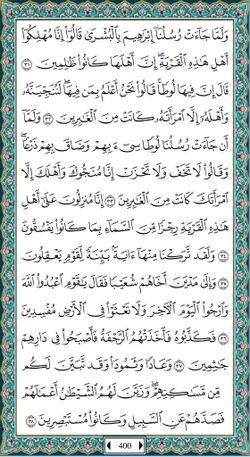 وَلَمَّا جَآءَتْ رُسُلُنَآ إِبْرَٰهِيمَ بِٱلْبُشْرَىٰ قَالُوٓا۟ إِنَّا مُهْلِكُوٓا۟
أَهْلِ هَٰذِهِ ٱلْقَرْيَةِ ۖ إِنَّ أَهْلَهَا كَانُوا۟ ظَٰلِمِينَ ٣١
قَالَ إِنَّ فِيهَا لُوطًا ۚ قَالُوا۟ نَحْنُ أَعْلَمُ بِمَن فِيهَا ۖ لَنُنَجِّيَنَّهُۥ
وَأَهْلَهُۥٓ إِلَّا ٱمْرَأَتَهُۥ كَانَتْ مِنَ ٱلْغَٰبِرِينَ ٣٢ وَلَمَّآ
أَن جَآءَتْ رُسُلُنَا لُوطًا سِىٓءَ بِهِمْ وَضَاقَ بِهِمْ ذَرْعًا ۖ
وَقَالُوا۟ لَا تَخَفْ وَلَا تَحْزَنْ ۖ إِنَّا مُنَجُّوكَ وَأَهْلَكَ إِلَّا
ٱمْرَأَتَكَ كَانَتْ مِنَ ٱلْغَٰبِرِينَ ٣٣ إِنَّا مُنزِلُونَ عَلَىٰٓ أَهْلِ
هَٰذِهِ ٱلْقَرْيَةِ رِجْزًا مِّنَ ٱلسَّمَآءِ بِمَا كَانُوا۟ يَفْسُقُونَ
٣٤ وَلَقَد تَّرَكْنَا مِنْهَآ ءَايَةًۢ بَيِّنَةً لِّقَوْمٍ يَعْقِلُونَ
٣٥ وَإِلَىٰ مَدْيَنَ أَخَاهُمْ شُعَيْبًا فَقَالَ يَٰقَوْمِ ٱعْبُدُوا۟ ٱللَّهَ
وَٱرْجُوا۟ ٱلْيَوْمَ ٱلْءَاخِرَ وَلَا تَعْثَوْا۟ فِى ٱلْأَرْضِ مُفْسِدِينَ
٣٦ فَكَذَّبُوهُ فَأَخَذَتْهُمُ ٱلرَّجْفَةُ فَأَصْبَحُوا۟ فِى دَارِهِمْ
جَٰثِمِينَ ٣٧ وَعَادًا وَثَمُودَا۟ وَقَد تَّبَيَّنَ لَكُم
مِّن مَّسَٰكِنِهِمْ ۖ وَزَيَّنَ لَهُمُ ٱلشَّيْطَٰنُ أَعْمَٰلَهُمْ
فَصَدَّهُمْ عَنِ ٱلسَّبِيلِ وَكَانُوا۟ مُسْتَبْصِرِينَ ٣٨
400